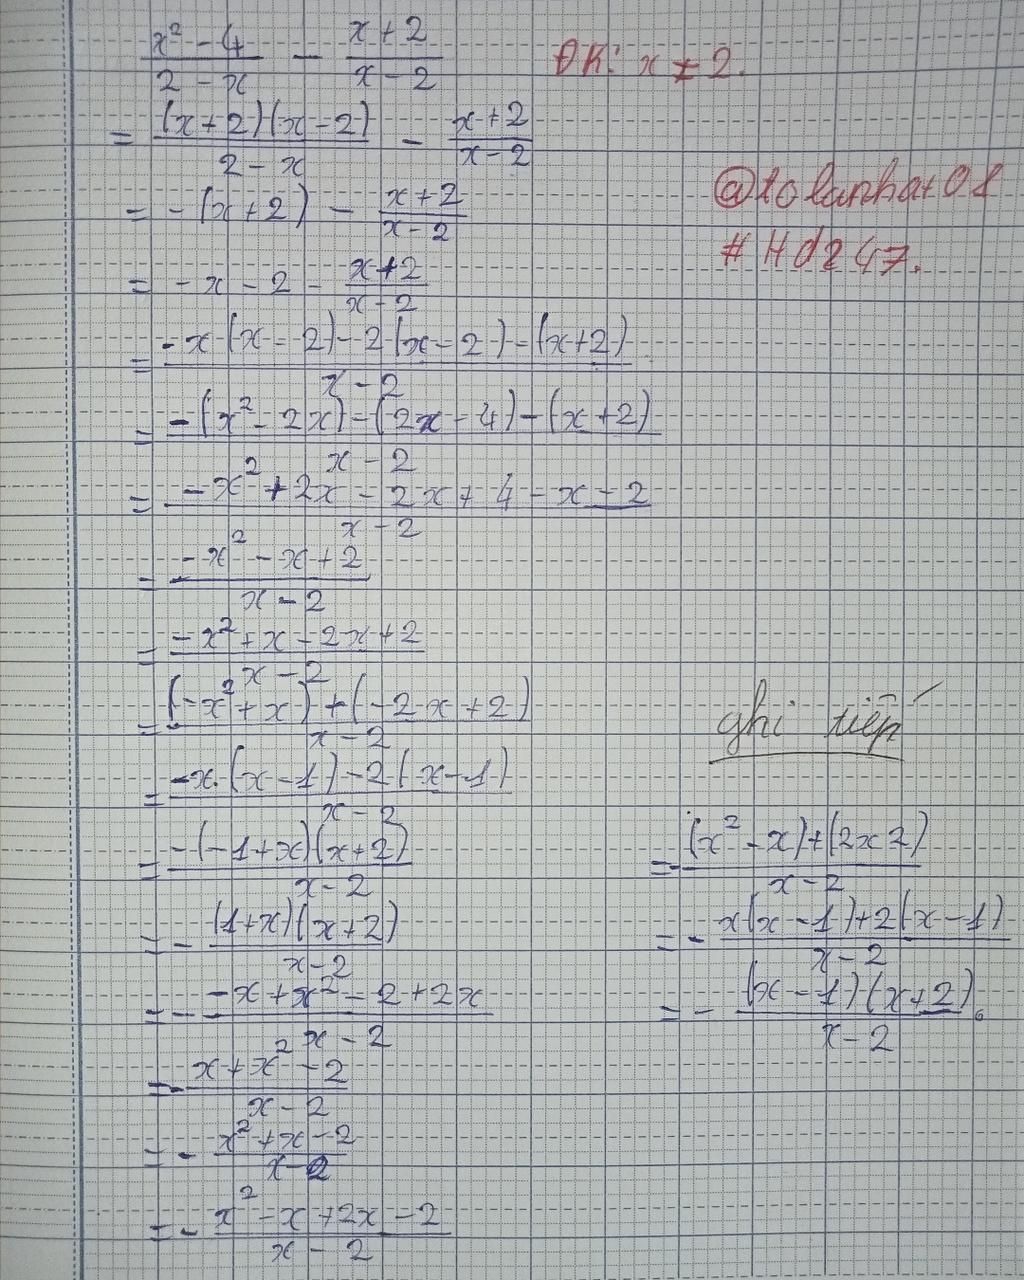 x² - 4 / 2 - x - x + 2 / x - 2 ĐK: x ≠ 2.
= (x + 2)(x - 2) / 2 - x - x + 2 / x - 2
= - (x + 2) - x + 2 / x - 2
@tolanhat08
# Hd247.
= - x - 2 - x + 2 / x - 2
= -x·(x - 2) - 2(x - 2) - (x + 2) / x - 2
= -(x² - 2x) - (2x - 4) - (x + 2) / x - 2
= -x² + 2x - 2x + 4 - x - 2 / x - 2
= -x² - x + 2 / x - 2
= -x² + x - 2x + 2 / x - 2
= (-x² + x) + (-2x + 2) / x - 2
= -x·(x - 1) - 2(x - 1) / x - 2
= -(-1 + x)(x + 2) / x - 2
= - (1 + x)(x + 2) / x - 2
= - -x + x² - 2 + 2x / x - 2
= - x + x² - 2 / x - 2
= - x² + x - 2 / x - 2
= - x² - x + 2x - 2 / x - 2
ghi tiếp
= - (x² - x) + (2x 2) / x - 2
= - x(x - 1) + 2(x - 1) / x - 2
= - (x - 1)(x + 2) / x - 2 .